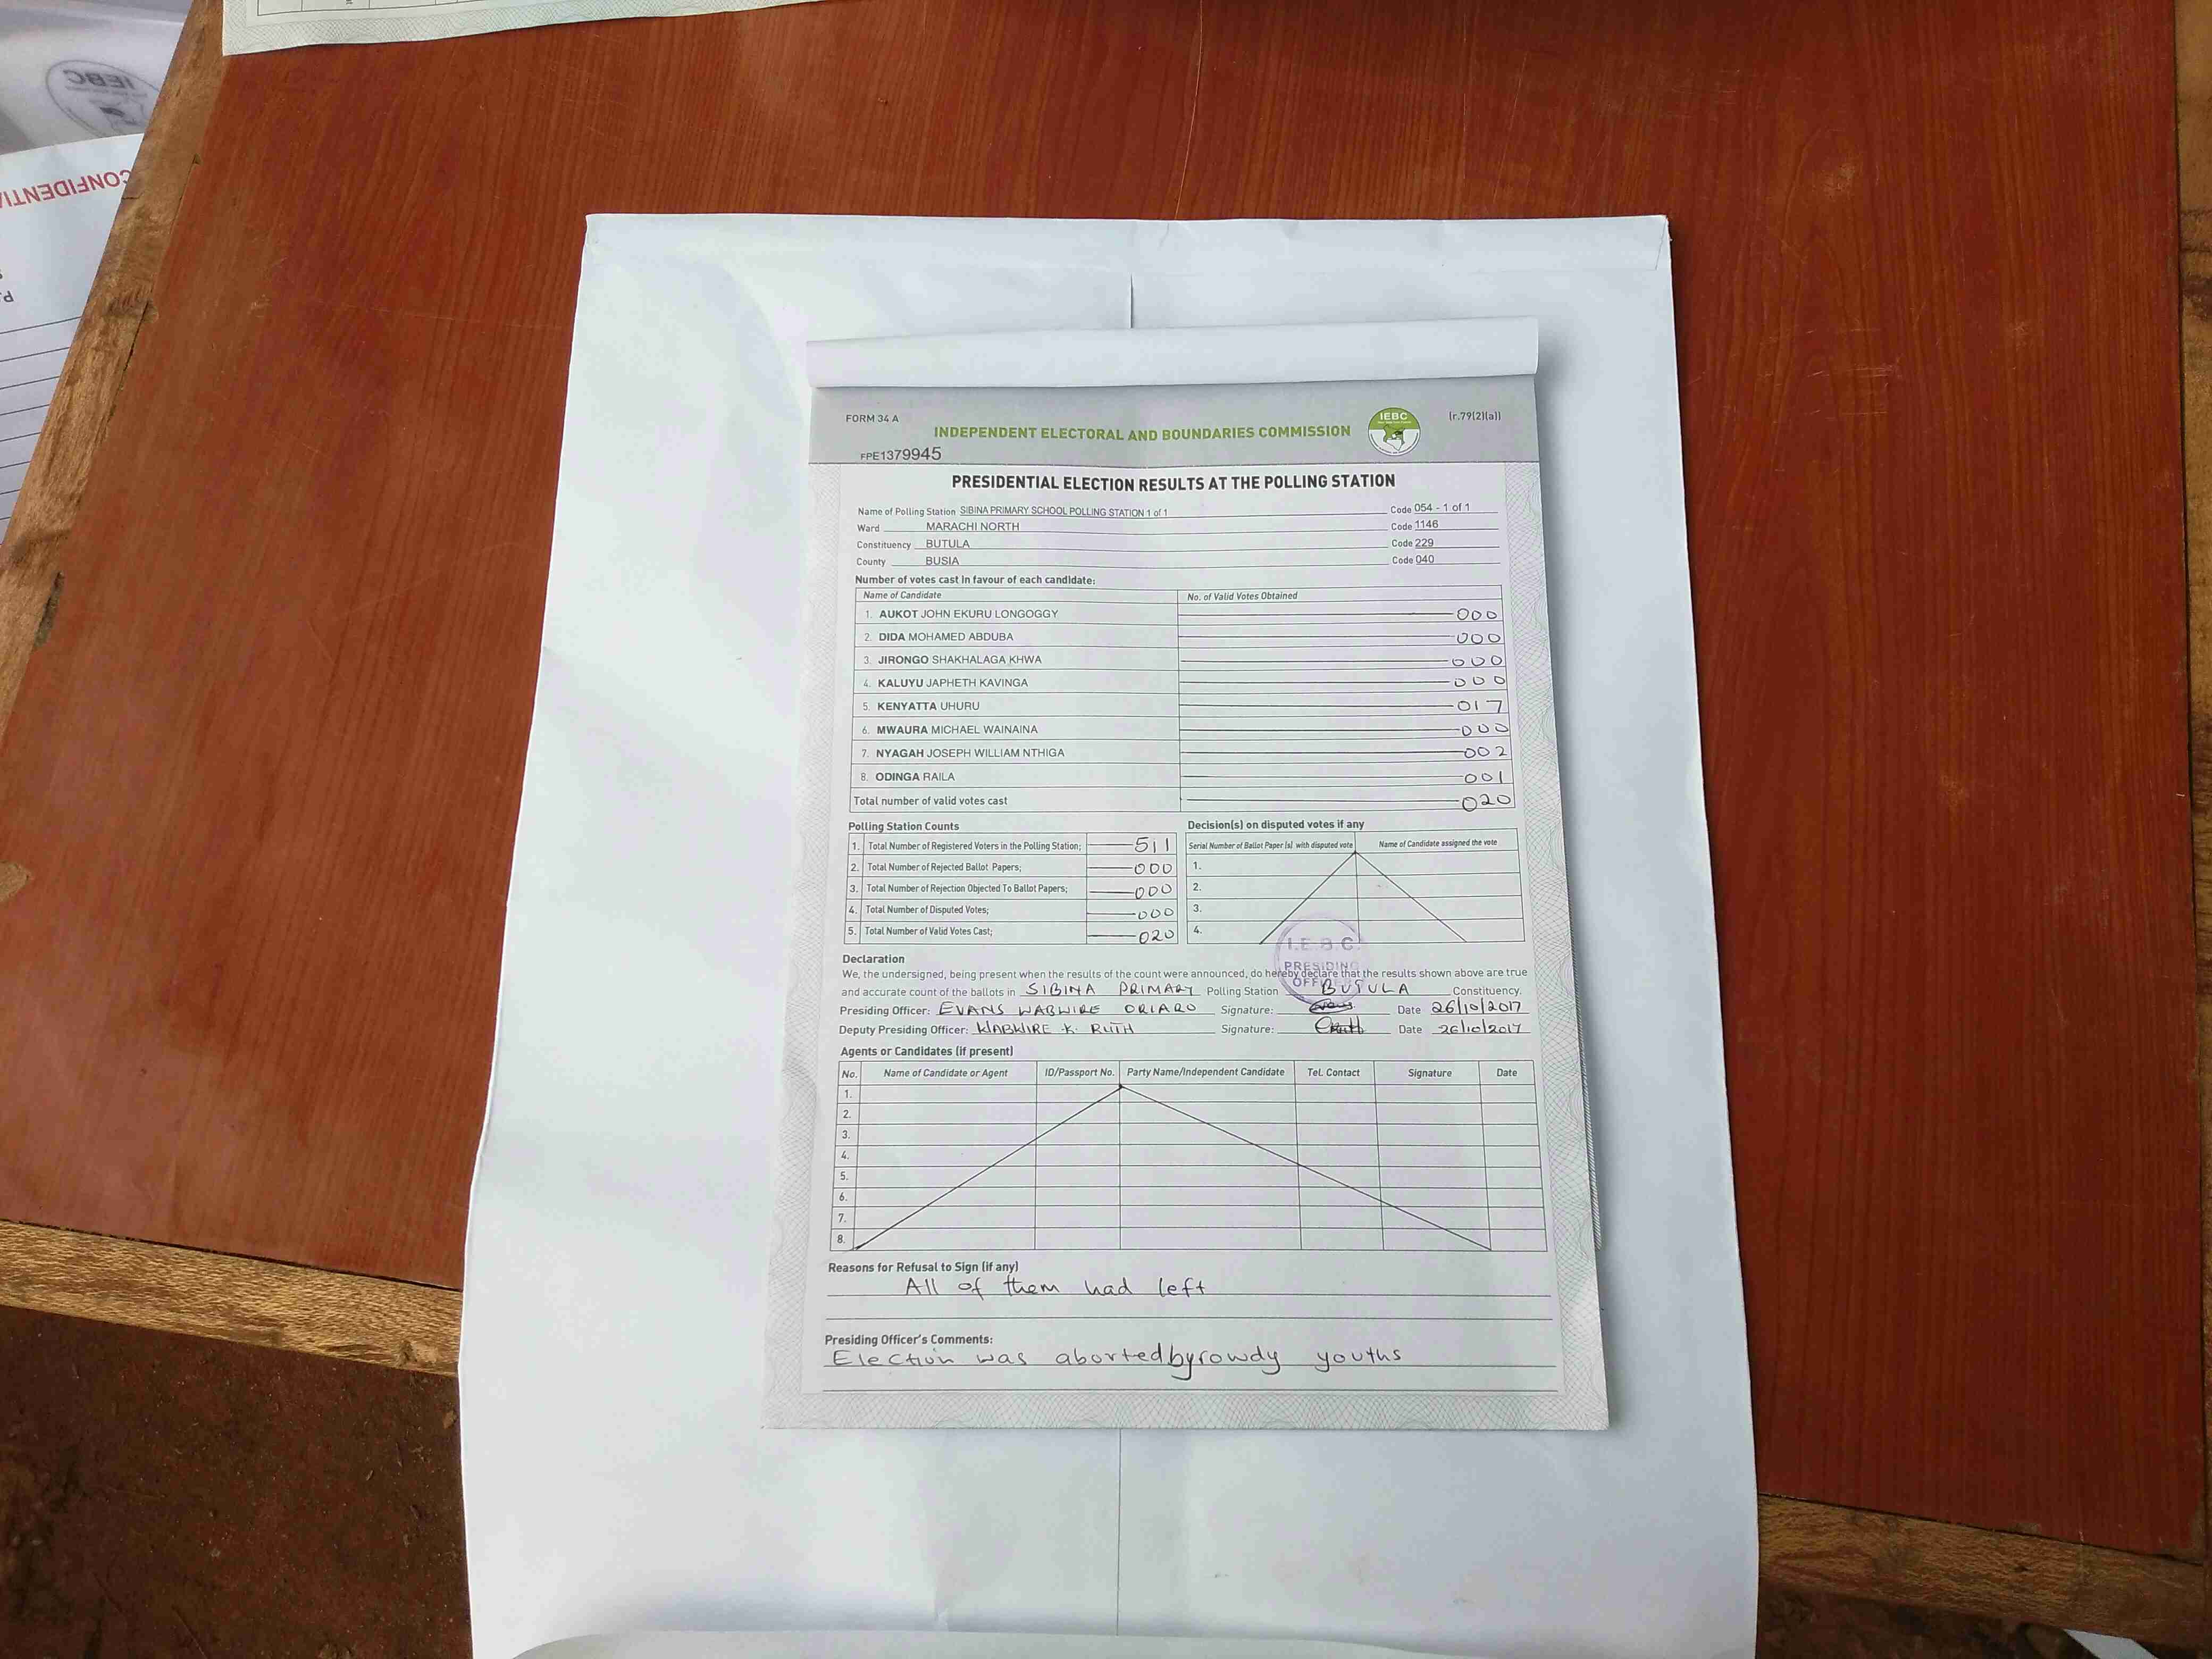 IEBC
CONFIDENTIA
FORM 34 A
INDEPENDENT ELECTORAL AND BOUNDARIES COMMISSION
IEBC
(r.79(2)(a))
FPE1379945
PRESIDENTIAL ELECTION RESULTS AT THE POLLING STATION
Name of Polling Station SIBINA PRIMARY SCHOOL POLLING STATION 1 of 1 Code 054 - 1 of 1
Ward MARACHI NORTH Code 1146
Constituency BUTULA Code 229
County BUSIA Code 040
Number of votes cast in favour of each candidate:
Name of Candidate No. of Valid Votes Obtained
1. AUKOT JOHN EKURU LONGOGGY 000
2. DIDA MOHAMED ABDUBA 000
3. JIRONGO SHAKHALAGA KHWA 000
4. KALUYU JAPHETH KAVINGA 000
5. KENYATTA UHURU 017
6. MWAURA MICHAEL WAINAINA 000
7. NYAGAH JOSEPH WILLIAM NTHIGA 002
8. ODINGA RAILA 001
Total number of valid votes cast 020
Polling Station Counts
1. Total Number of Registered Voters in the Polling Station; 511
2. Total Number of Rejected Ballot Papers; 000
3. Total Number of Rejection Objected To Ballot Papers; 000
4. Total Number of Disputed Votes; 000
5. Total Number of Valid Votes Cast; 020
Decision(s) on disputed votes if any
Serial Number of Ballot Paper (s) with disputed vote Name of Candidate assigned the vote
1.
2.
3.
4.
I.E.B.C.
PRESIDING
OFFICER
Declaration
We, the undersigned, being present when the results of the count were announced, do hereby declare that the results shown above are true
and accurate count of the ballots in SIBINA PRIMARY Polling Station BUTULA Constituency.
Presiding Officer: EVANS WABWIRE ORIARO Signature: Date 26/10/2017
Deputy Presiding Officer: WABWIRE K. RUTH Signature: Date 26/10/2017
Agents or Candidates (if present)
No. Name of Candidate or Agent ID/Passport No. Party Name/Independent Candidate Tel. Contact Signature Date
1.
2.
3.
4.
5.
6.
7.
8.
Reasons for Refusal to Sign (if any)
All of them had left
Presiding Officer's Comments:
Election was aborted by rowdy youths